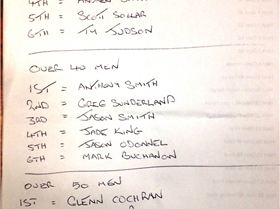 4TH = ANDREW SMITH
5TH = SCOTT SOLLAR
6TH = TY JUDSON
OVER 40 MEN
1ST = ANTHONY SMITH
2ND = GREG SUNDERLAND
3RD = JASON SMITH
4TH = JADE KING
5TH = JASON ODONNEL
6TH = MARK BUCHANON
OVER 50 MEN
1ST = GLENN COCHRAN